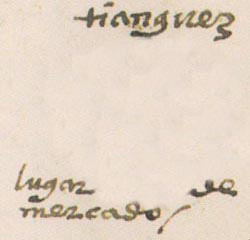 tianguez
lugar de
mercado /